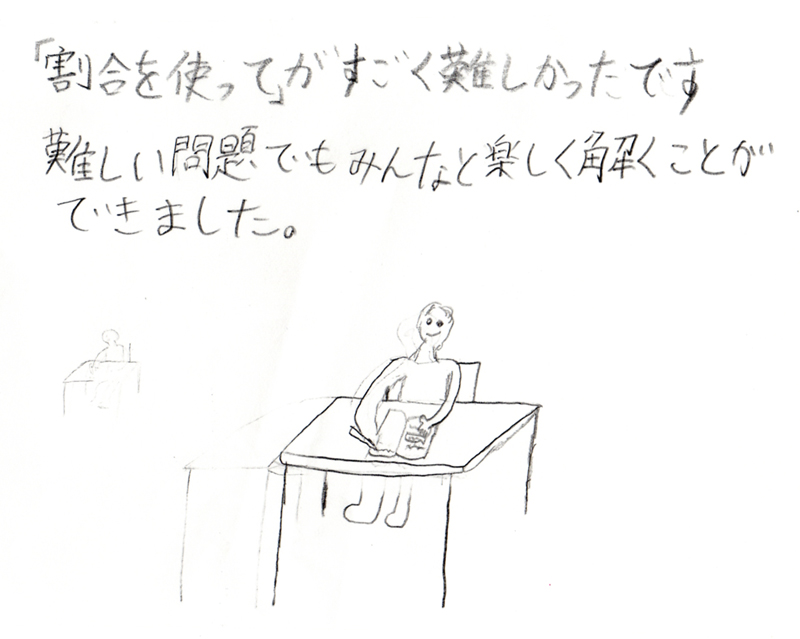 「割合を使って」がすごく難しかったです
難しい問題でもみんなと楽しく解くことが
できました。